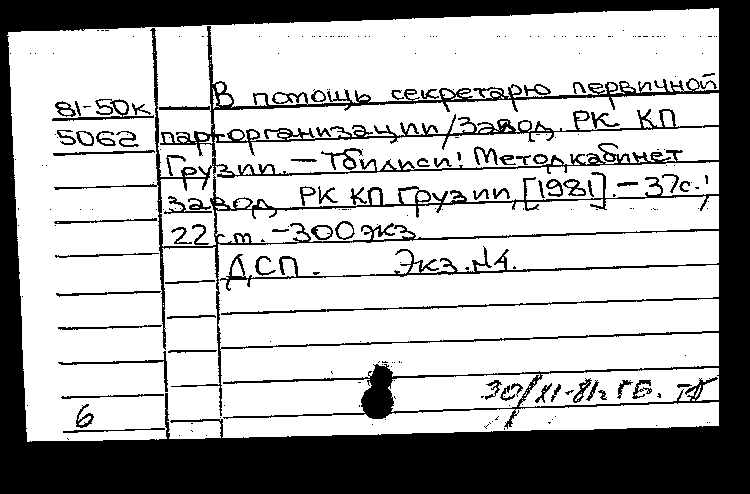 81-50к В помощь секретарю первичной
5062 парторганизации/Завод. РК КП
Грузии. — Тбилиси: Метод,кабинет
Завод. РК КП Грузии, [1981]. — 37с.;
22 см. — 300 экз.
ДСП. Экз. №4.
30/XI-81г ГБ.
6